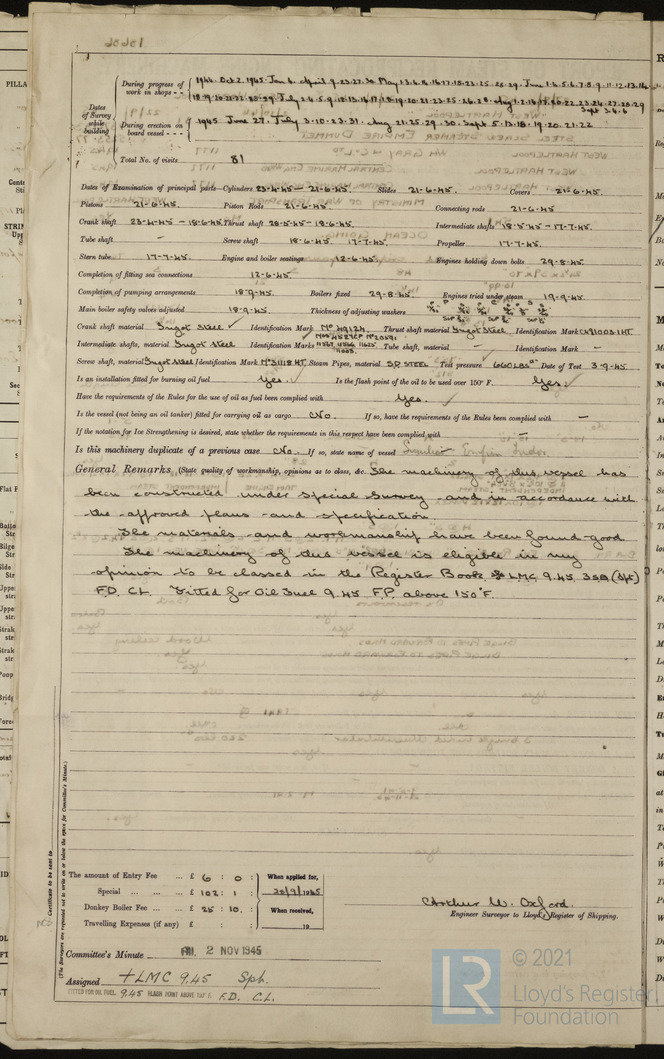 Dates of Survey while building
During progress of work in shops - -
1944. Oct 2. 1945 Jan 6. April 9.23.27.30 May
During erection on board vessel - - - 1945 June 27. July 3.10.23.31. Aug 21.25.29.30. Sept 5.13.18.19.20.21.22
Total No. of visits 81
Dates of Examination of principal parts—Cylinders 23-4-45 — 21-6-45. Slides 21-6-45. Covers 21-6-45.
Pistons 21-6-45. Piston Rods 21-6-45. Connecting rods 21-6-45
Crank shaft 23-4-45 — 18-6-45 Thrust shaft 28-5-45 - 18-6-45. Intermediate shafts 18-5-45 - 17-7-45.
Tube shaft - Screw shaft 18-6-45 17-7-45. Propeller 17-7-45.
Stern tube 17-7-45. Engine and boiler seatings 12-6-45. Engines holding down bolts 29-8-45.
Completion of fitting sea connections 12-6-45.
Completion of pumping arrangements 18-9-45. Boilers fixed 29-8-45. Engines tried under steam 19-9-45.
Main boiler safety valves adjusted 18-9-45. Thickness of adjusting washers
Crank shaft material Ingot Steel Identification Mark No 4912H. Thrust shaft material Ingot Steel Identification Mark
Intermediate shafts, material Ingot Steel Identification Marks Tube shaft, material - Identification Mark -
Screw shaft, material Ingot Steel Identification Mark No 3118 HT. Steam Pipes, material S.D. STEEL Test pressure 660 LBS □" Date of Test 3-9-45.
Is an installation fitted for burning oil fuel Yes. Is the flash point of the oil to be used over 150° F. Yes.
Have the requirements of the Rules for the use of oil as fuel been complied with Yes.
Is the vessel (not being an oil tanker) fitted for carrying oil as cargo No. If so, have the requirements of the Rules been complied with -
If the notation for Ice Strengthening is desired, state whether the requirements in this respect have been complied with -
Is this machinery duplicate of a previous case No. If so, state name of vessel
General Remarks (State quality of workmanship, opinions as to class, &c. The machinery of this vessel has
been constructed under special survey and in accordance with
the approved plans and specification.
The materials and workmanship have been found good
The machinery of this vessel is eligible in my
opinion to be classed in the Register Book LMC 9.45. 3SB (Spt)
F.D. CL. Fitted for Oil Fuel 9.45 F.P. above 150°F.
The amount of Entry Fee ... £ 6 : 0 : When applied for,
Special ... ... ... £ 102 : 1 : 28/9/1945
Donkey Boiler Fee ... ... £ 25 : 10. : When received,
Travelling Expenses (if any) £ : : 19
Arthur W. Oxford.
Engineer Surveyor to Lloyd's Register of Shipping.
Committee's Minute FRI. 2 NOV 1945
Assigned + LMC 9.45 Spt.
FITTED FOR OIL FUEL. 9.45 FLASH POINT ABOVE 150° F. F.D. C.L.
Certificate to be sent to
(The Surveyors are requested not to write on or below the space for Committee's Minute.)
LR © 2021
Lloyd's Register
Foundation